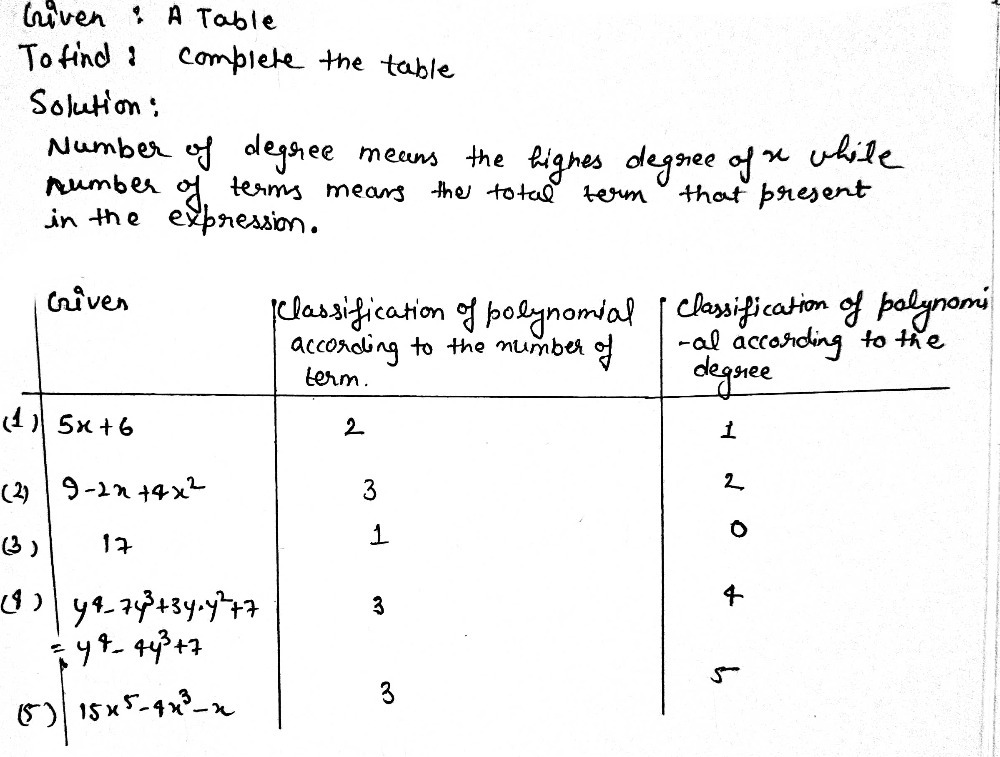 Given : A Table
To find : Complete the table
Solution :
Number of degree means the highes degree of x while
number of terms means the total term that present
in the expression.
Given | Classification of polynomial according to the number of term. | Classification of polynomi-al according to the degree
(1) 5x+6 | 2 | 1
(2) 9-2x+4x² | 3 | 2
(3) 17 | 1 | 0
(4) y⁴-7y³+3y·y²+7 | 3 | 4
= y⁴-4y³+7
(5) 15x⁵-4x³-x | 3 | 5